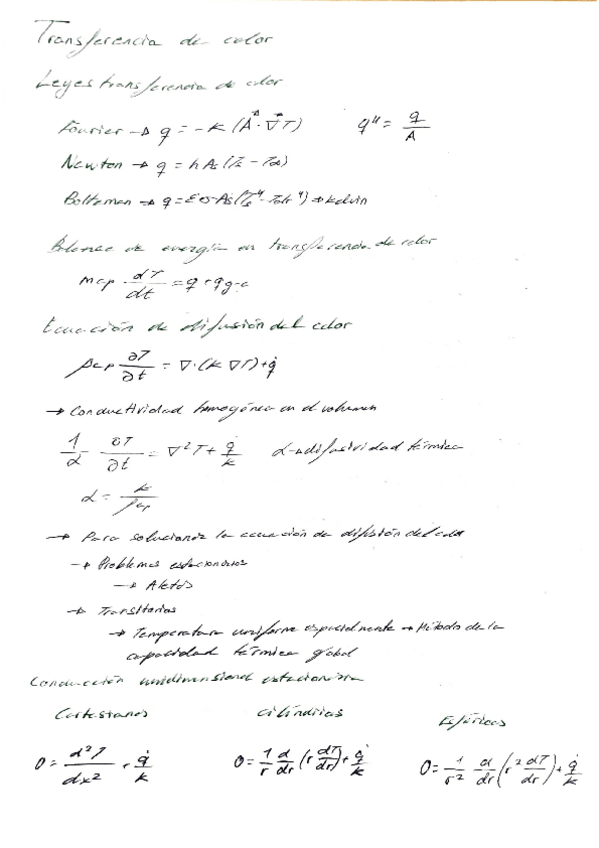 Transferencia de calor
Leyes transferencia de calor
Fourier → q = -k (A⃗ · ∇⃗T)    q'' = q/A
Newton → q = h As (Ts - T∞)
Boltzman → q = εσAs(Ts⁴ - Talr⁴) → kelvin
Balance de energía en transferencia de calor
m cp dT/dt = q + qg-e
Ecuación de difusión del calor
ρcp ∂T/∂t = ∇·(k ∇T) + q̇
→ Conductividad homogénea en el volumen
1/α ∂T/∂t = ∇²T + q̇/k    α → difusividad térmica
α = k/ρcp
→ Para solucionar la ecuación de difusión del calor
→ Problemas estacionarios
→ Aletas
→ Transitorios
→ Temperatura uniforme espacialmente → Método de la
capacidad térmica global
Conducción unidimensional estacionaria
Cartesianas    Cilíndricas    Esféricas
0 = d²T/dx² + q̇/k    0 = 1/r d/dr (r dT/dr) + q̇/k    0 = 1/r² d/dr (r² dT/dr) + q̇/k